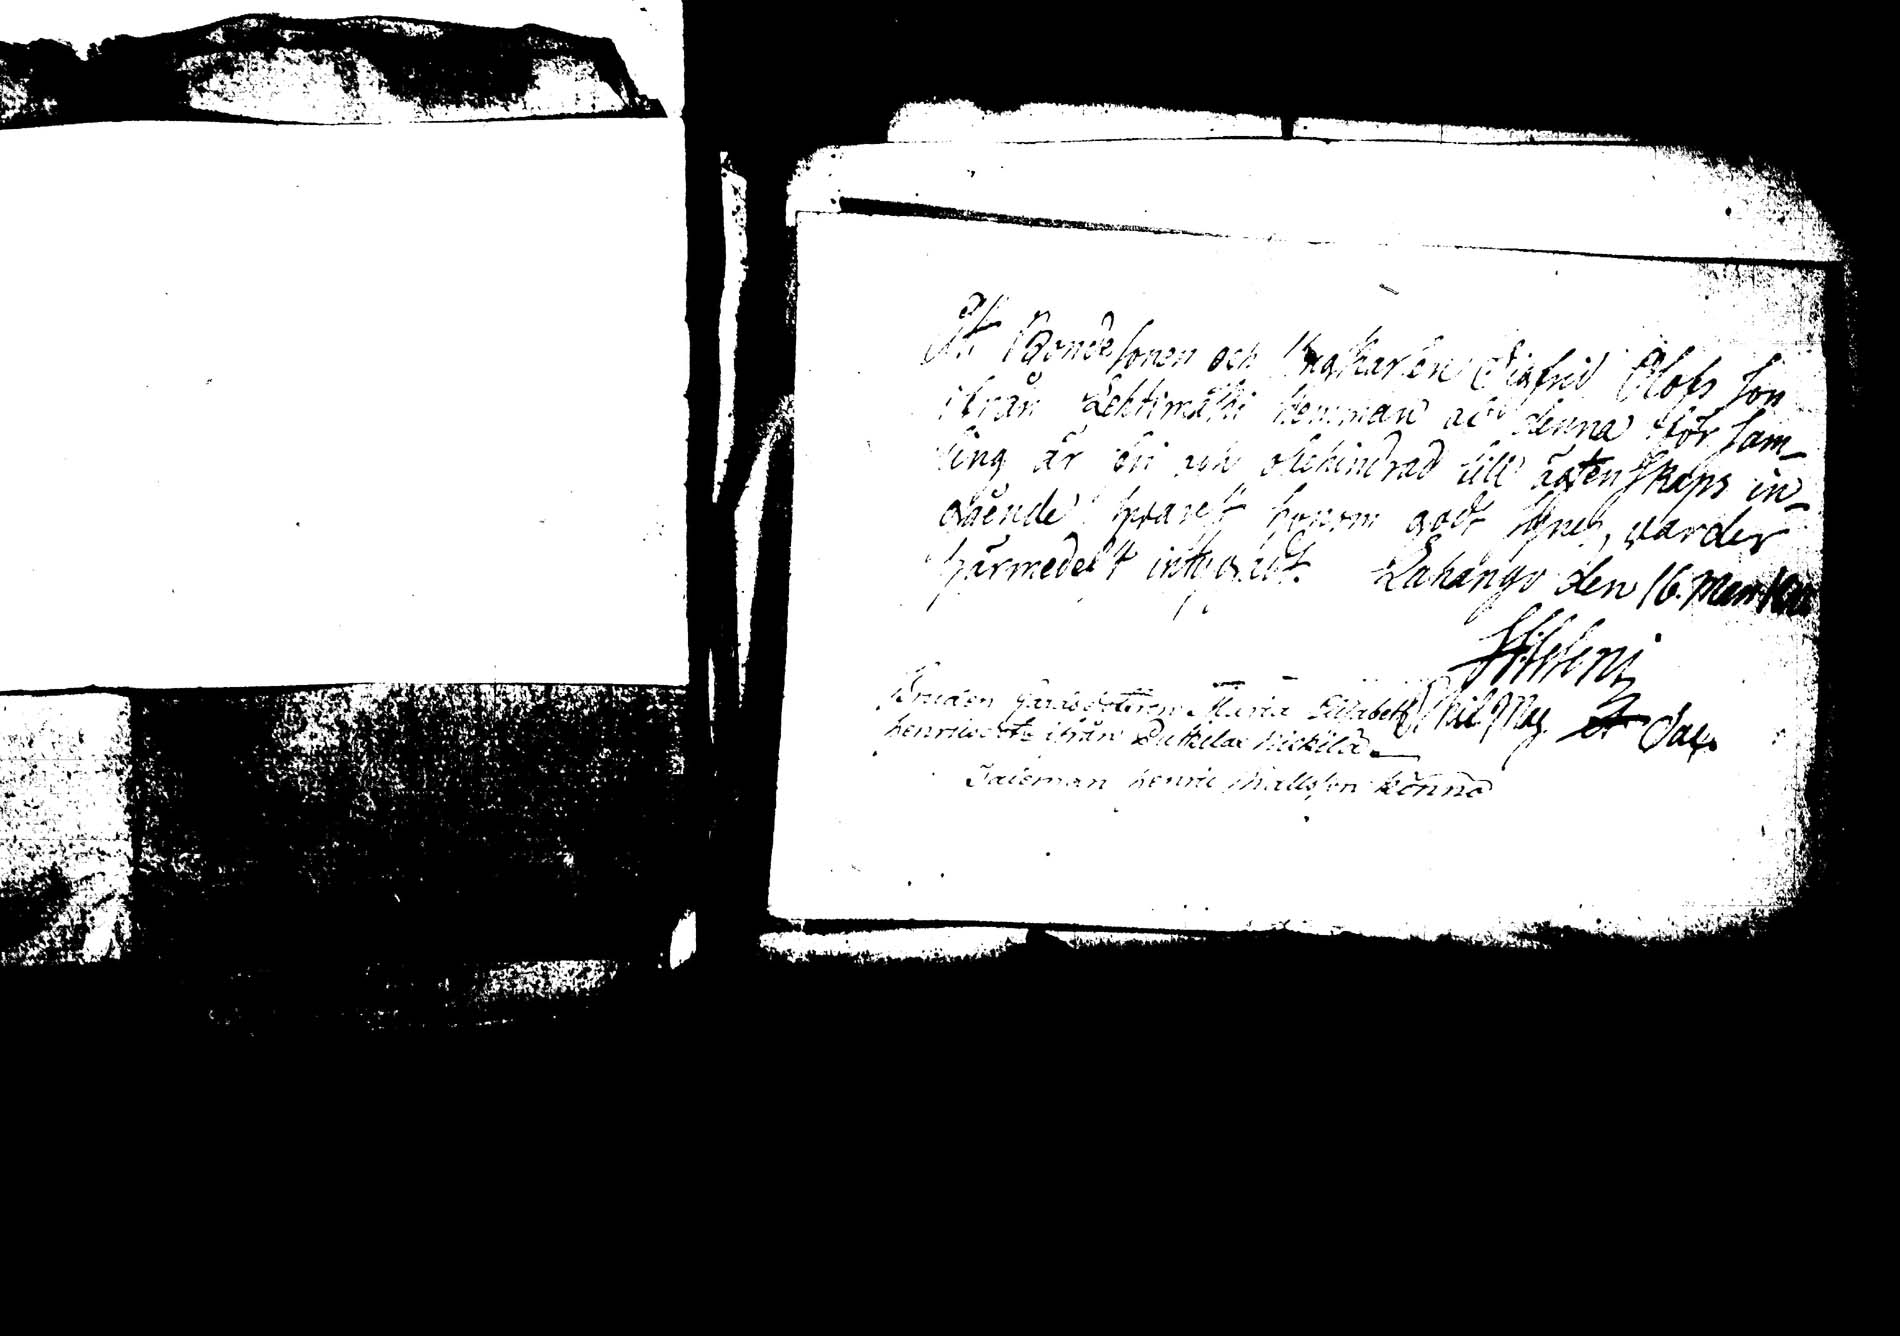 At Bondesonen och Ungkarlen Sigfrid Olofs son
ifrån Lehtimäki hemman af denna För sam-
ling är fri och obehindrad till ägten skaps in-
gående hvarest honom godt synes, varder
härmedelst intygadt. Lahango den 16. Mars
Bruden gårdsdotteren Maria Elisabeth
henricsdotr ifrån Duktila Nickilä
Phil Mag. et Sac.
Taleman henric Mattsson Könnö